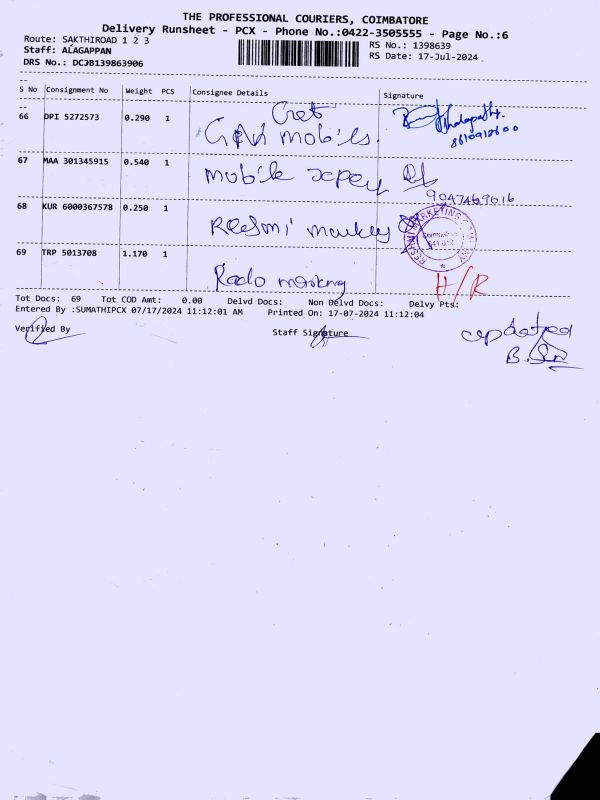 THE PROFESSIONAL COURIERS, COIMBATORE
Delivery Runsheet - PCX - Phone No.:0422-3505555 - Page No.:6
Route: SAKTHIROAD 1 2 3
RS No.: 1398639
Staff: ALAGAPPAN
RS Date: 17-Jul-2024
DRS No.: DCJB139863906
S No Consignment No Weight PCS Consignee Details Signature
66 DPI 5272573 0.290 1
mobiles.
67 MAA 301345915 0.540 1 mobile
9047469016
68 KUR 6000367578 0.250 1
69 TRP 5013708 1.170 1
H/R
Tot Docs: 69 Tot COD Amt: 0.00 Delvd Docs: Non Delvd Docs: Delvy Pts:
Entered By :SUMATHIPCX 07/17/2024 11:12:01 AM Printed On: 17-07-2024 11:12:04
Verified By Staff Signature
updated